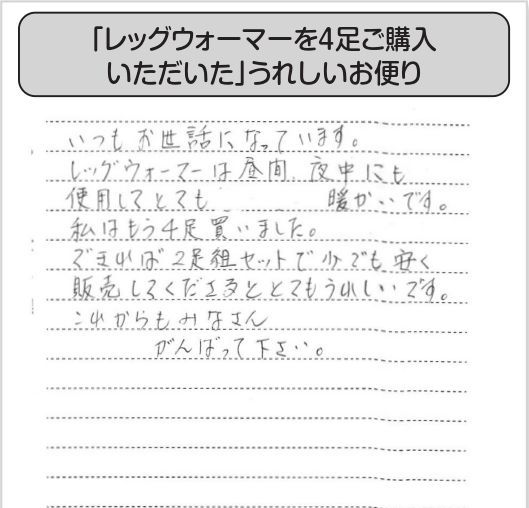 「レッグウォーマーを4足ご購入
いただいた」うれしいお便り
いつもお世話になっています。
レッグウォーマーは昼間、夜中にも
使用してとても 暖かいです。
私はもう4足買いました。
できれば2足組セットで少でも安く
販売してくださるととてもうれしいです。
これからもみなさん
がんばって下さい。